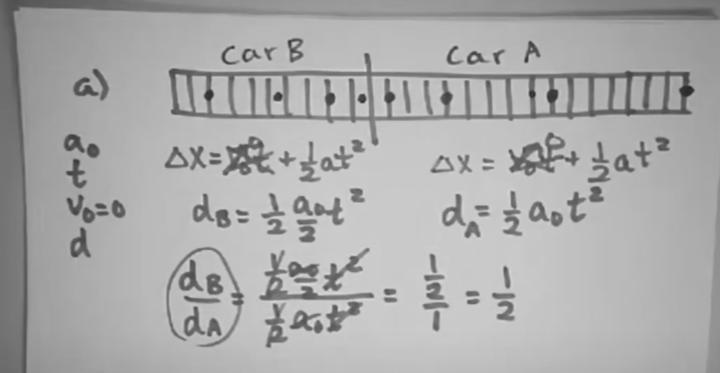 Car B Car A
a)
a₀ ΔX = v₀t⁰ + 1/2 at² ΔX = v₀t⁰ + 1/2 at²
t
v₀=0 d_B = 1/2 a₀/2 t² d_A = 1/2 a₀t²
d
d_B/d_A = (1/2 a₀/2 t²)/(1/2 a₀t²) = (1/2)/1 = 1/2